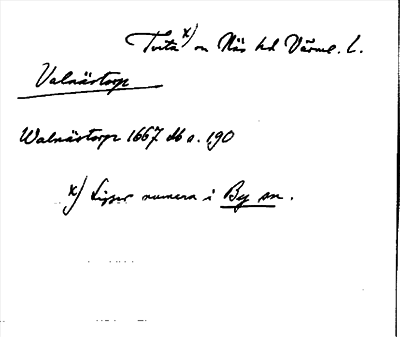 Tveta x) sn Näs hd Värml. l.
Valnästorp
Walnästorp 1667 db a. 190
x) Ligger numera i By sn.